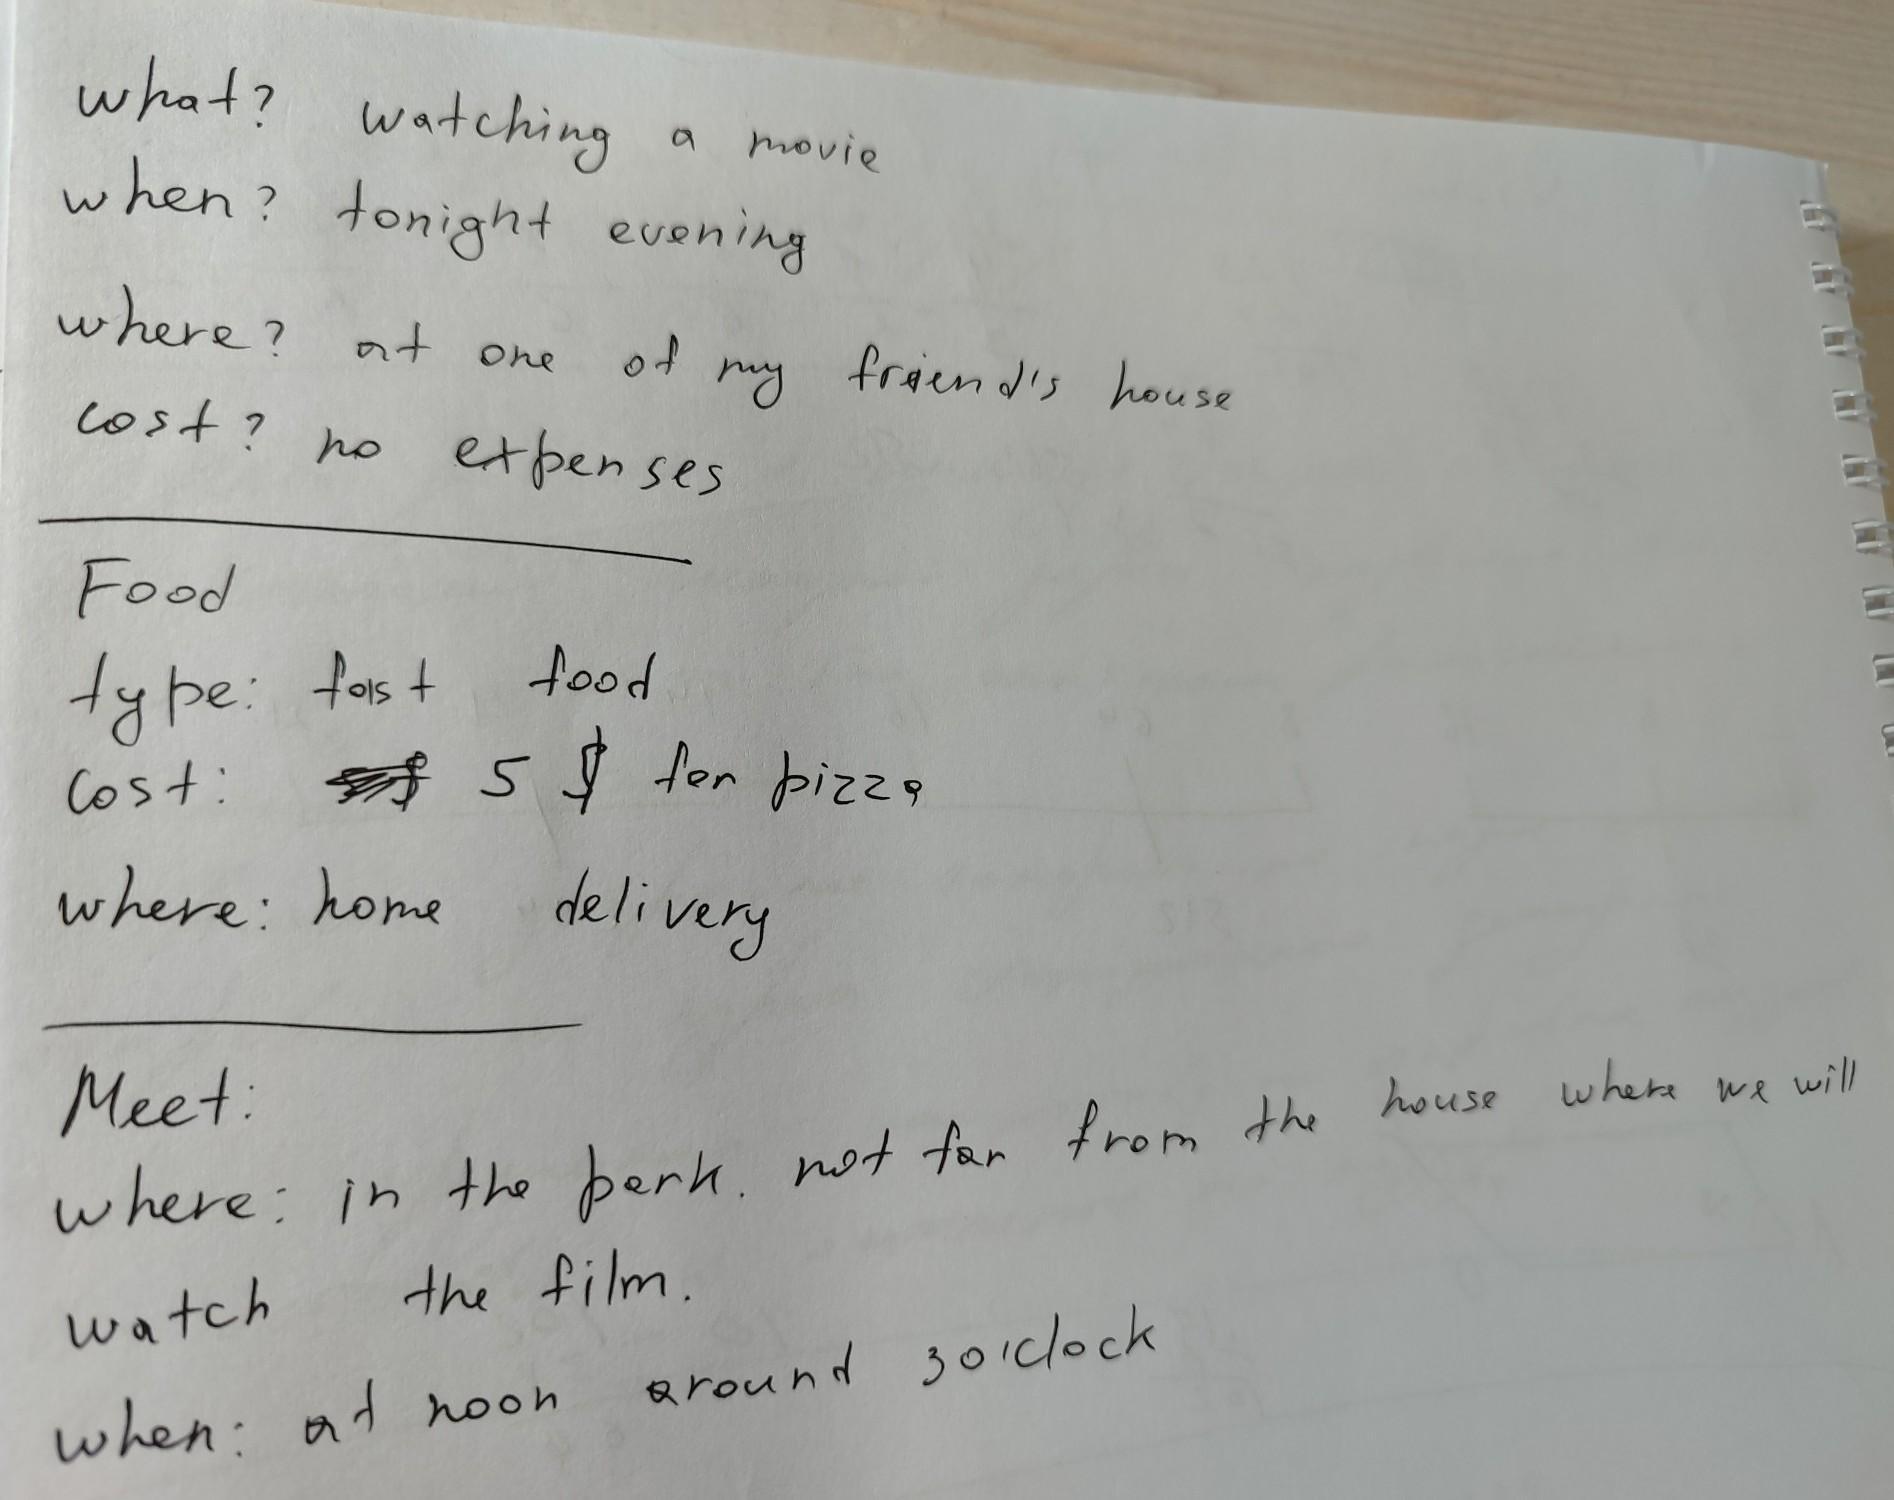 what? watching a movie
when? tonight evening
where? at one of my friend's house
cost? no expenses
Food
type: fast food
cost: 5 $ for pizza
where: home delivery
Meet:
where: in the park. not far from the house where we will
watch the film.
when: at noon around 3 o'clock